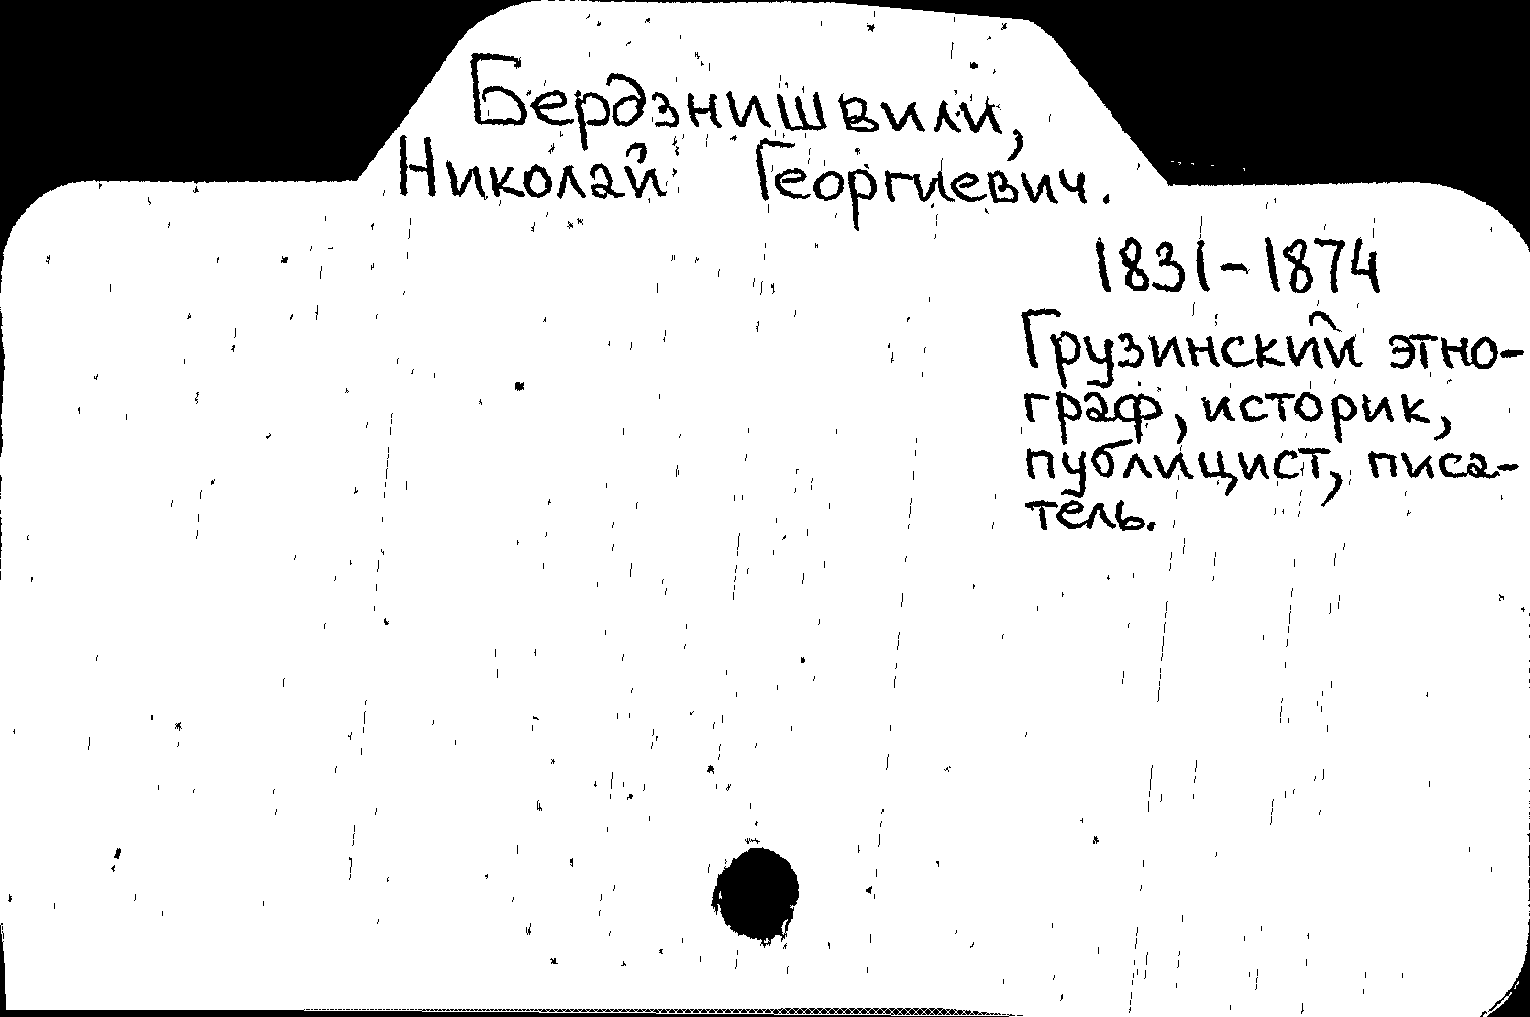 Бердзнишвили,
Николай Георгиевич.
1831-1874
Грузинский этно-
граф, историк,
публицист, писа-
тель.